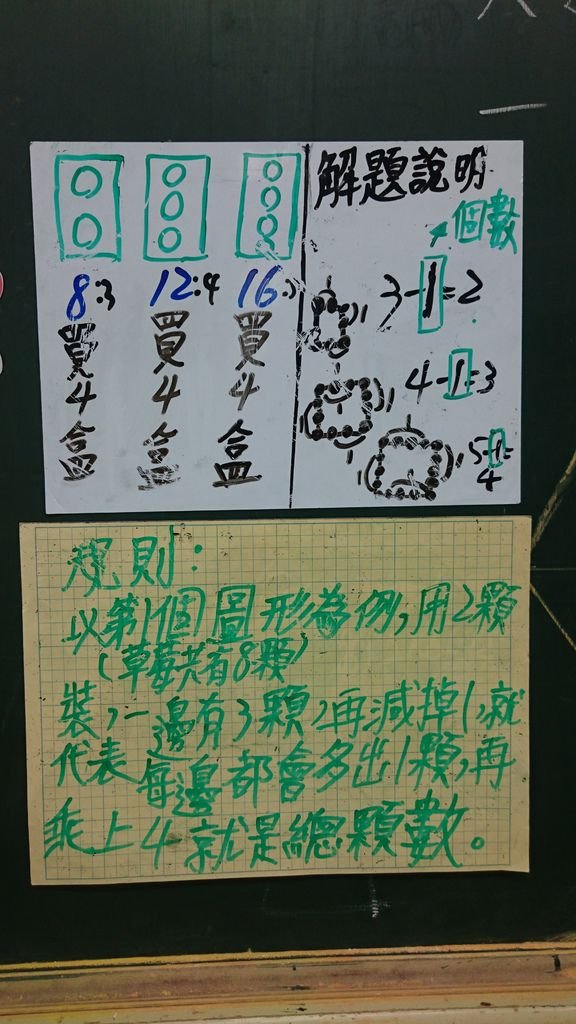 8:3 12:4 16:5
買4盒 買4盒 買4盒
解題說明
個數
3-1=2
4-1=3
5-1=
4
規則:
以第1個圖形為例,用2顆
(草莓共有8顆)
裝,一邊有3顆,再減掉1,就
代表每邊都會多出1顆,再
乘上4就是總顆數。